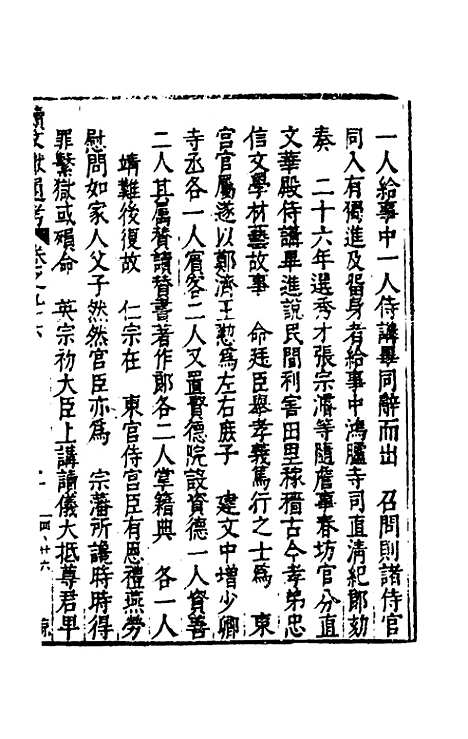 一人給事中一人侍講畢同辭而出　召問則諸侍官
同入有獨進及留身者給事中鴻臚寺司直清紀郎劾
奏　二十六年選秀才張宗濬等隨詹事春坊官分直
文華殿侍講畢進說民間利害田里稼穡古今孝弟忠
信文學材藝故事　命廷臣舉孝義篤行之士為　東
宮官屬遂以鄭濟王懃為左右庶子　建文中增少卿
寺丞各一人賓客二人又置賢德院設資德一人資善
二人其屬贊讀贊書著作郎各二人掌籍典　各一人
靖難後復故　仁宗在　東宮侍宮臣有恩禮燕勞
慰問如家人父子然然官臣亦為　宗藩所讒時時得
罪繫獄或殞命　英宗初大臣上講讀儀大抵尊君卑
續文獻通考　卷之九十六